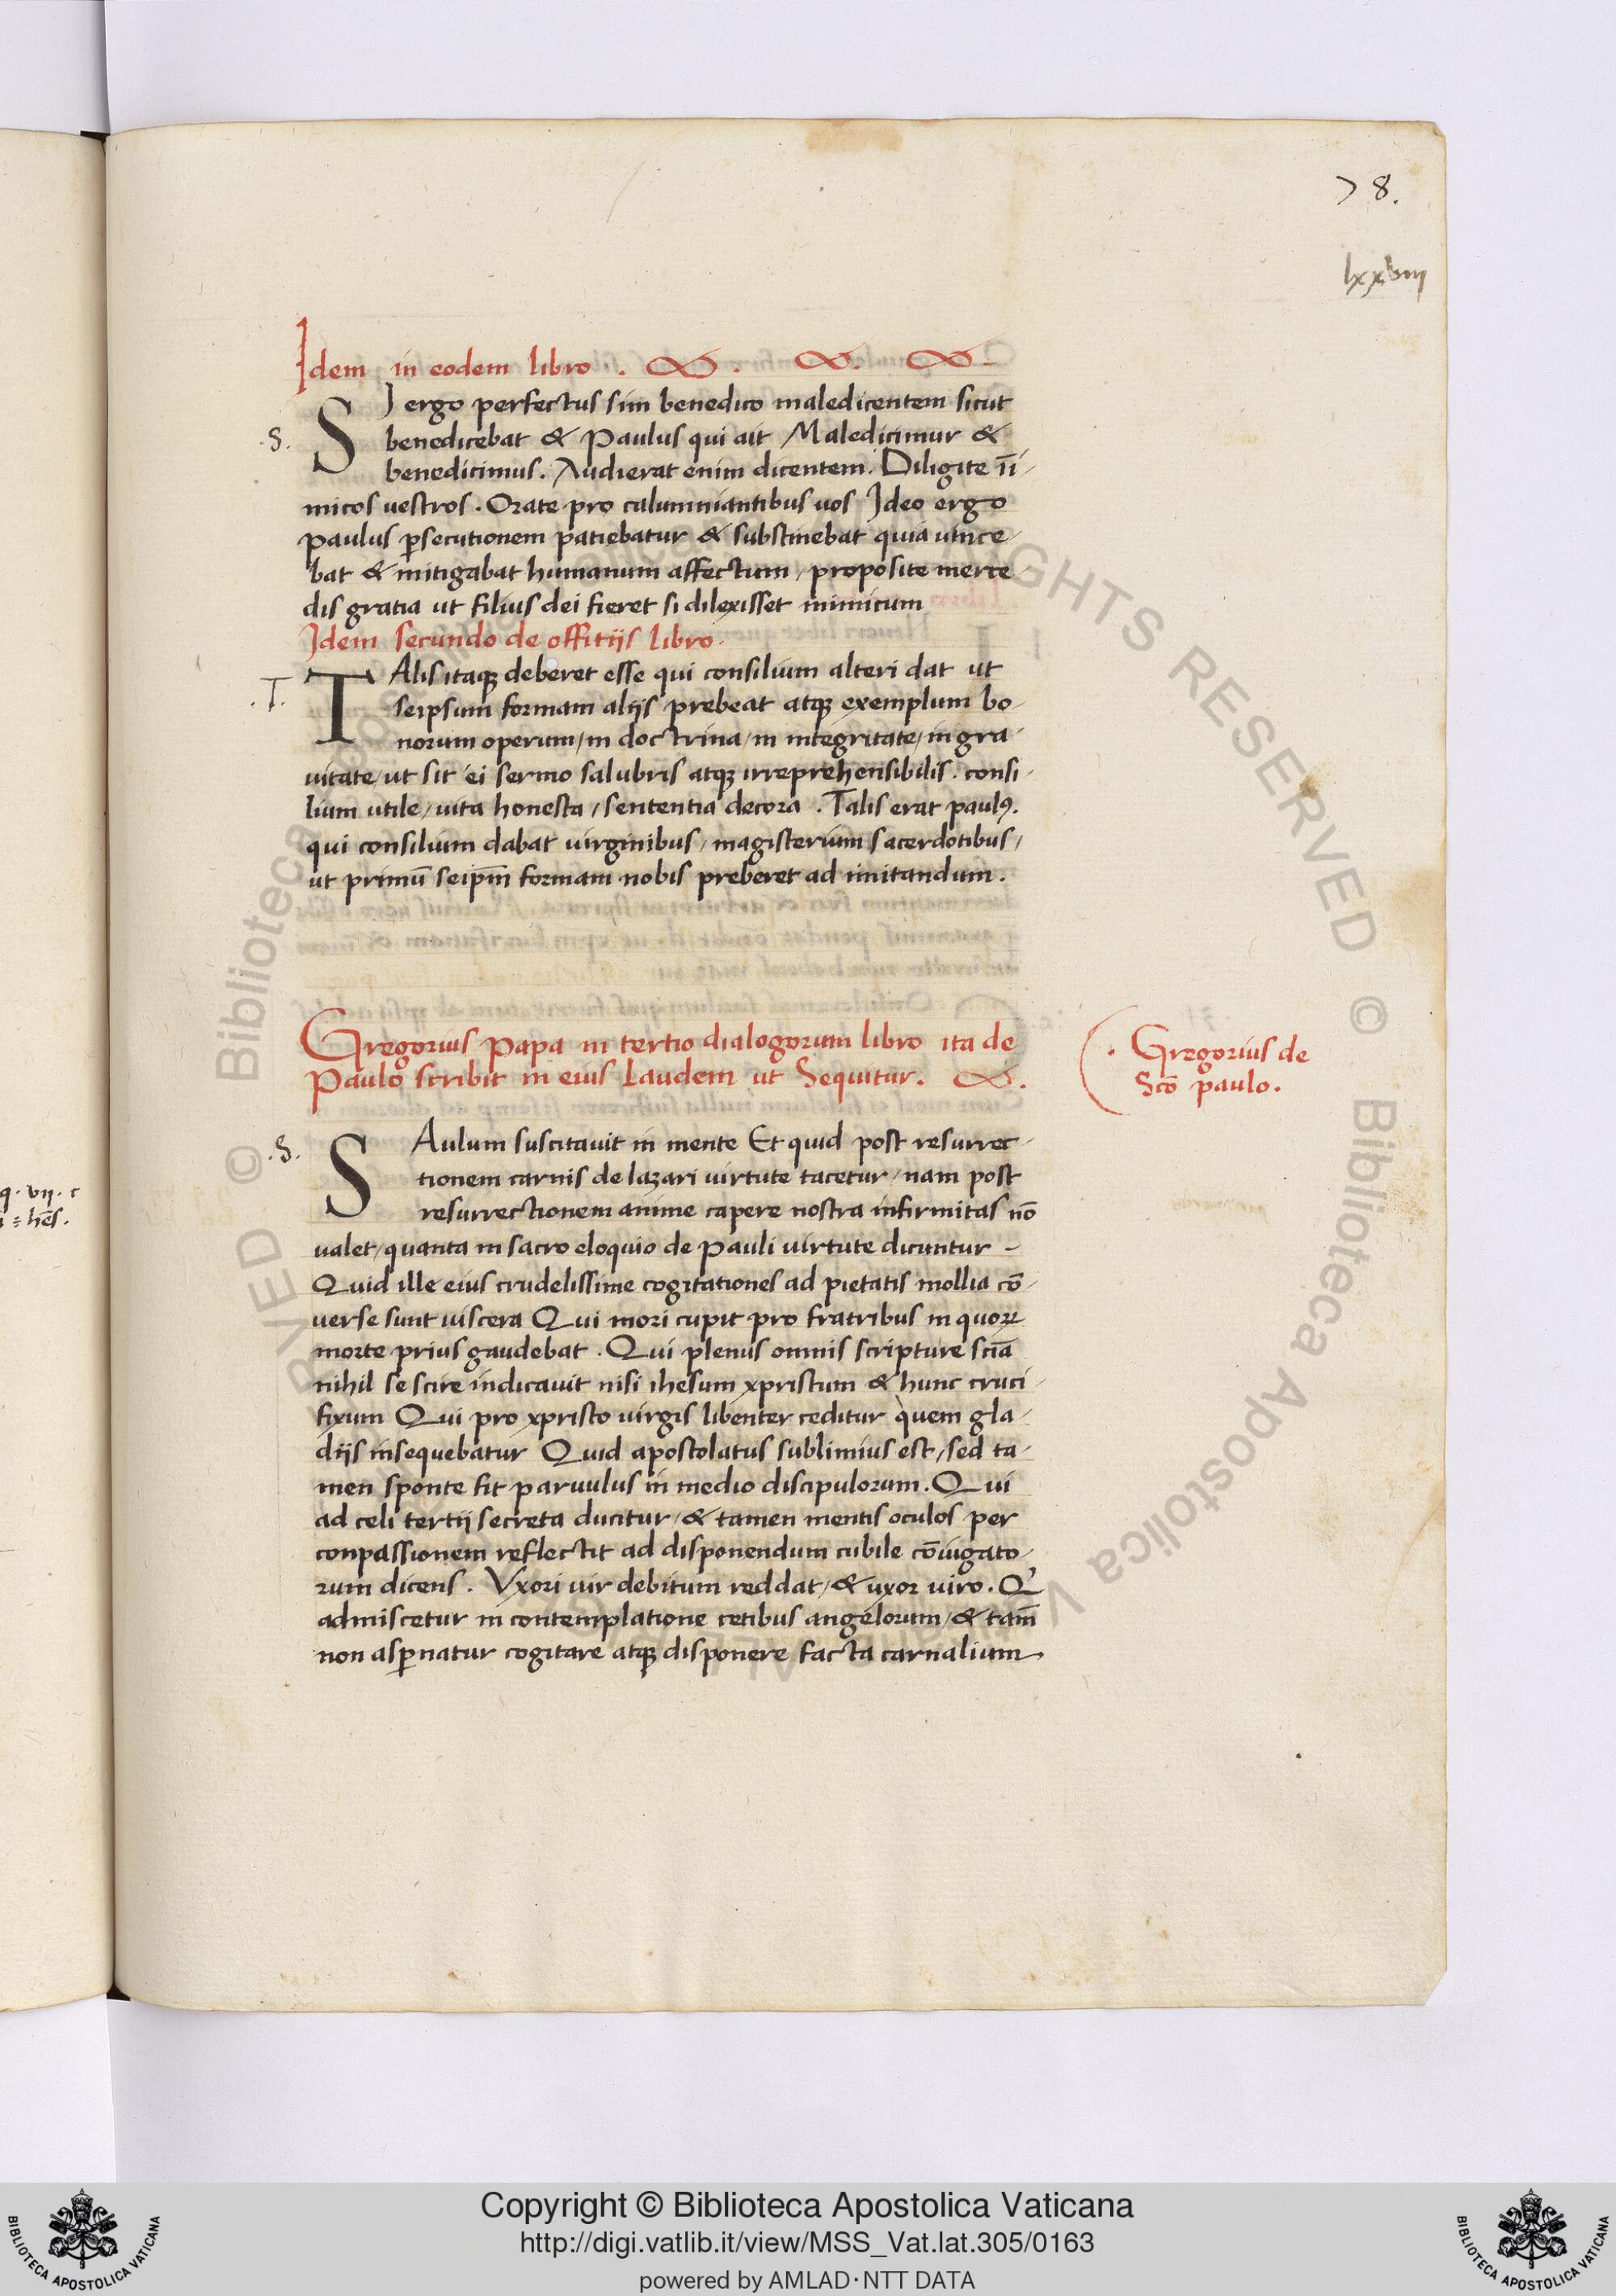 78.
lxxviij
Idem in eodem libro .
SI ergo perfectus sim benedico maledicentem sicut
.S.
benedicebat & Paulus qui ait Maledicimur &
benedicimus. Audierat enim dicentem. Diligite iī-
micos vestros. Orate pro calumniantibus vos Ideo ergo
paulus ꝑsecutionem patiebatur & substinebat quia vince-
bat & mitigabat humanum affectum, proposite merce
dis gratia ut filius dei fieret si dilexisset inimicum
Idem secundo de offitijs libro.
TAlis itaqꝫ deberet esse qui consilium alteri dat ut
.T.
seipsum formam alijs prebeat atqꝫ exemplum bo-
norum operum/in doctrina/in integritate/in gra-
uitate/ut sit ei sermo salubris atqꝫ irreprehensibilis. consi-
lium utile/uita honesta/sententia decora. Talis erat paulꝰ.
qui consilium dabat uirginibus/magisterium sacerdotibus/
ut primū seip̄m formam nobis preberet ad imitandum.
Gregorius Papa in tertio dialogorum libro ita de
Paulo scribit in eius Laudem ut Sequitur.
. Gregorius de
Scō paulo.
SAulum suscitauit in mente Et quid post resurrec-
.S.
tionem carnis de lazari uirtute tacetur/nam post
resurrectionem anime capere nostra infirmitas nō
ualet/quanta in sacro eloquio de Pauli uirtute dicuntur -
Quid ille eius crudelissime cogitationes ad pietatis mollia cō-
uerse sunt uiscera Qui mori cupit pro fratribus in quoꝝ
morte prius gaudebat. Qui plenus omnis scripture sciā
nihil se scire indicauit nisi ihesum xpristum & hunc cruci-
fixum Qui pro xpristo uirgis libenter ceditur quem gla-
dijs insequebatur Quid apostolatus sublimius est/sed ta-
men sponte fit paruulus in medio discipulorum. Qui
ad celi tertij secreta ducitur/& tamen mentis oculos per
conpassionem reflectit ad disponendum cubile cōiugato-
rum dicens. Vxori uir debitum reddat/& uxor uiro. Q'
admiscetur in contemplatione cetibus angelorum/& tam̄
non asꝑnatur cogitare atqꝫ disponere facta carnalium
q. vij. c
hēs.
Copyright © Biblioteca Apostolica Vaticana
http://digi.vatlib.it/view/MSS_Vat.lat.305/0163
powered by AMLAD·NTT DATA
BIBLIOTECA APOSTOLICA VATICANA
BIBLIOTECA APOSTOLICA VATICANA